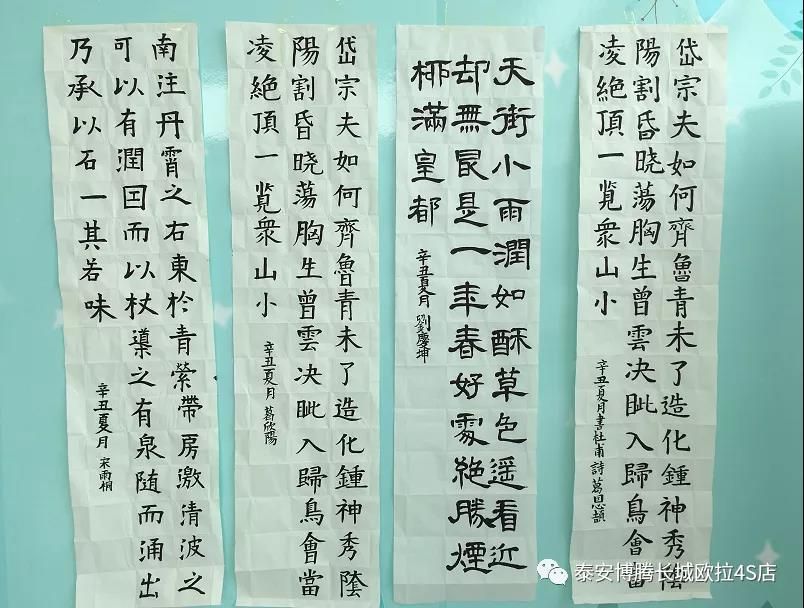 岱宗夫如何齊魯青未了造化鍾神秀陰
陽割昏晓蕩胸生曾雲决眦入歸鳥會當
凌絶頂一覧衆山小
辛丑夏月書杜甫詩葛思
天街小雨潤如酥草色遥看近
却無最是一年春好處絶勝煙
栁滿皇都
辛丑夏月劉慶坤
岱宗夫如何齊魯青未了造化鍾神秀陰
陽割昏晓蕩胸生曾雲决眦入歸鳥會當
凌絶頂一覧衆山小
辛丑夏月葛欣陽
南注丹霄之右東於青縈帶房激清波之
可以有潤囙而以杖導之有泉随而涌出
乃承以石一其若味
辛丑夏月宋雨桐
泰安博腾长城欧拉4S店